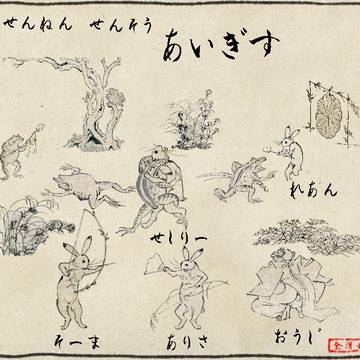 せんねん せんそう
あいぎす
れあん
せしりー
そーま
ありさ
おうじ